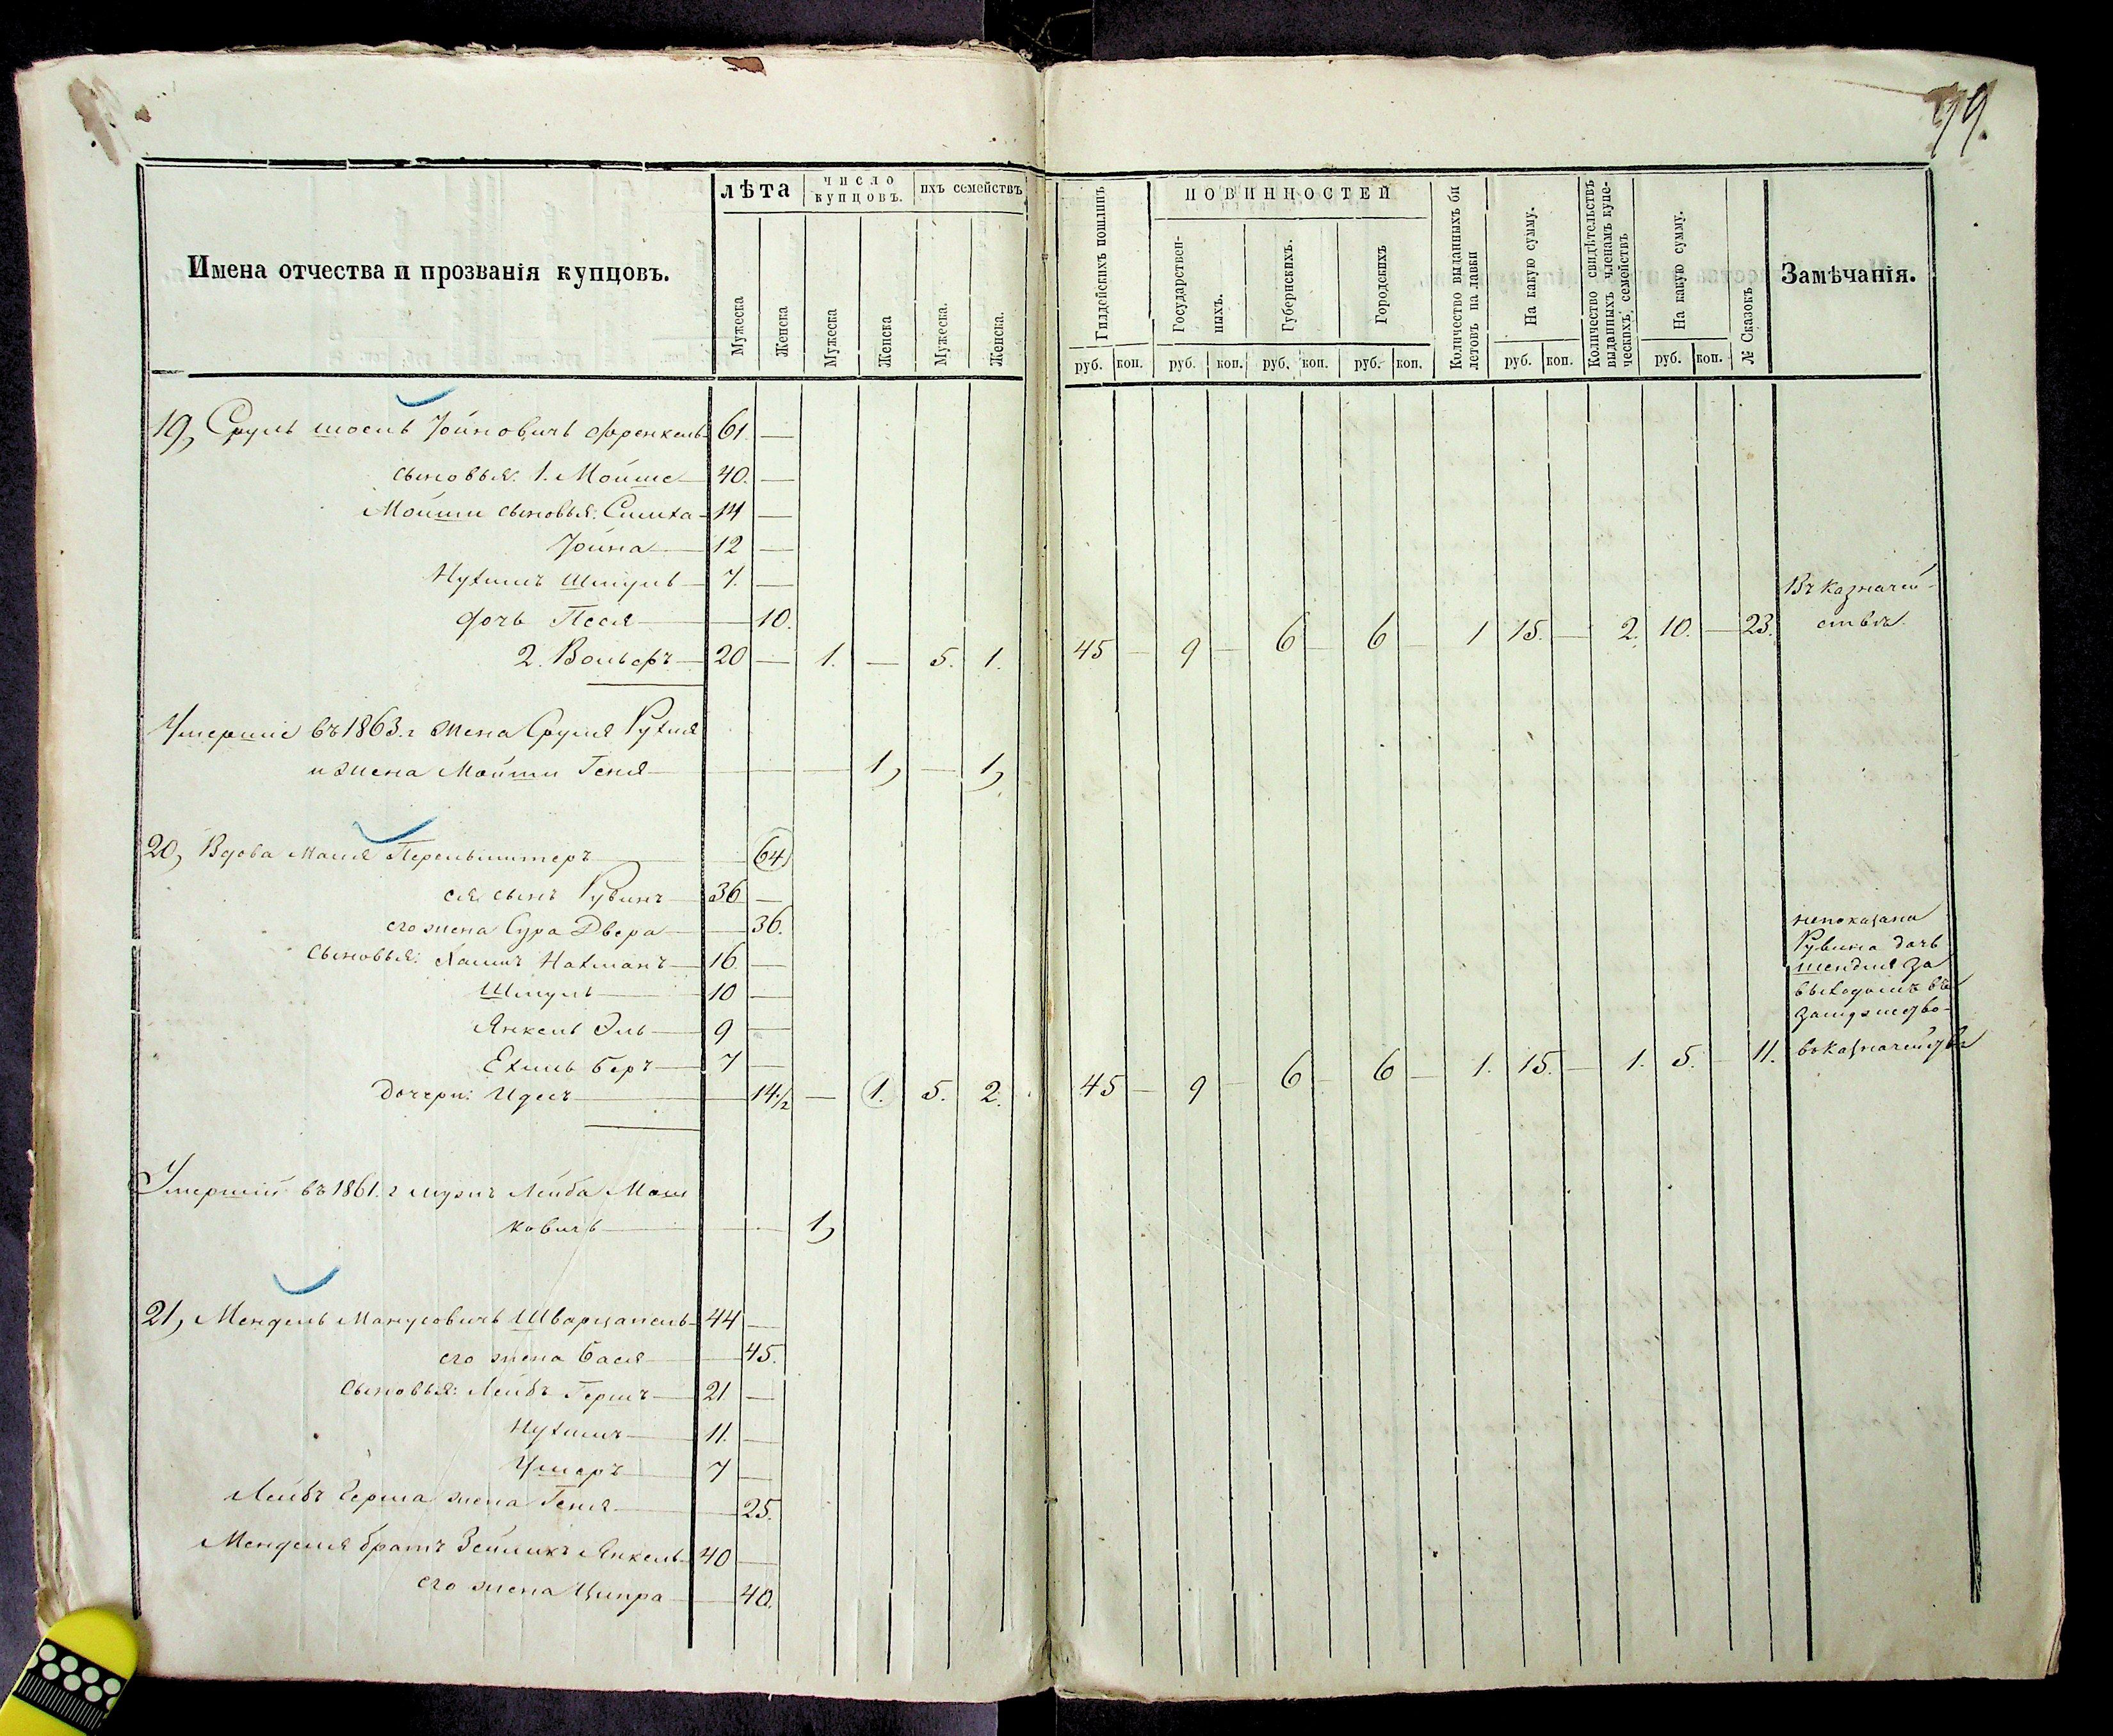 99.
Имена отчества и прозванія купцовъ.
лѣта
число купцовъ.
ихъ семействъ
Мужеска
Женска
Мужеска
Женска
Мужеска.
Женска.
Гилдейскихъ пошлинъ
ПОВИННОСТЕЙ
Государственныхъ.
Губернскихъ.
Городскихъ
Количество выданныхъ билетовъ на лавки
На какую сумму.
Количество свидѣтельствъ выданныхъ членамъ купеческихъ семействъ
На какую сумму.
№ Сказокъ
Замѣчанія.
руб. коп. руб. коп. руб. коп. руб. коп. руб. коп. руб. коп.
19, Сруль Іойновичъ Френкель 61. —
сыновья: 1. Мойше 40. —
Мойши сыновья: Симха 14 —
Іойна 12 —
Нухимъ Шмуль 7. —
дочь Песя — 10.
2. Вольфъ 20 — 1. — 5. 1. 45 — 9 — 6 — 6 — 1 15. — 2. 10. — 23.
Въ казначей-
ствѣ.
Умершіе въ 1863. г жена Сруля Рухля
и жена Мойши Геня — — — 1, — 1,
20, Вдова Маля Перельмитеръ — 64,
ея сынъ Рувинъ 36 —
его жена Сура Двера — 36.
сыновья: Хаимъ Нахманъ 16 —
Шмуль 10 —
Янкель Эль 9 —
Ехиль Беръ 7 —
дочери: Идесъ — 14 1/2 — 1. 5. 2. 45 — 9 — 6 — 6 — 1. 15. — 1. 5. — 11.
непоказана
Рувина дочь
за
выходомъ въ
замужество
въ казначействѣ
Умершій въ 1861. г мужъ Лейба Мош
ковичъ — — 1,
21, Мендель Манусовичъ Шварцапель 44 —
его жена Бася — 45.
сыновья: Лейбъ Гершъ 21 —
Нухимъ 11. —
Ушеръ 7 —
Лейбъ Герша жена Геня — 25.
Менделя братъ Зейликъ Янкель 40 —
его жена Ципра — 40.